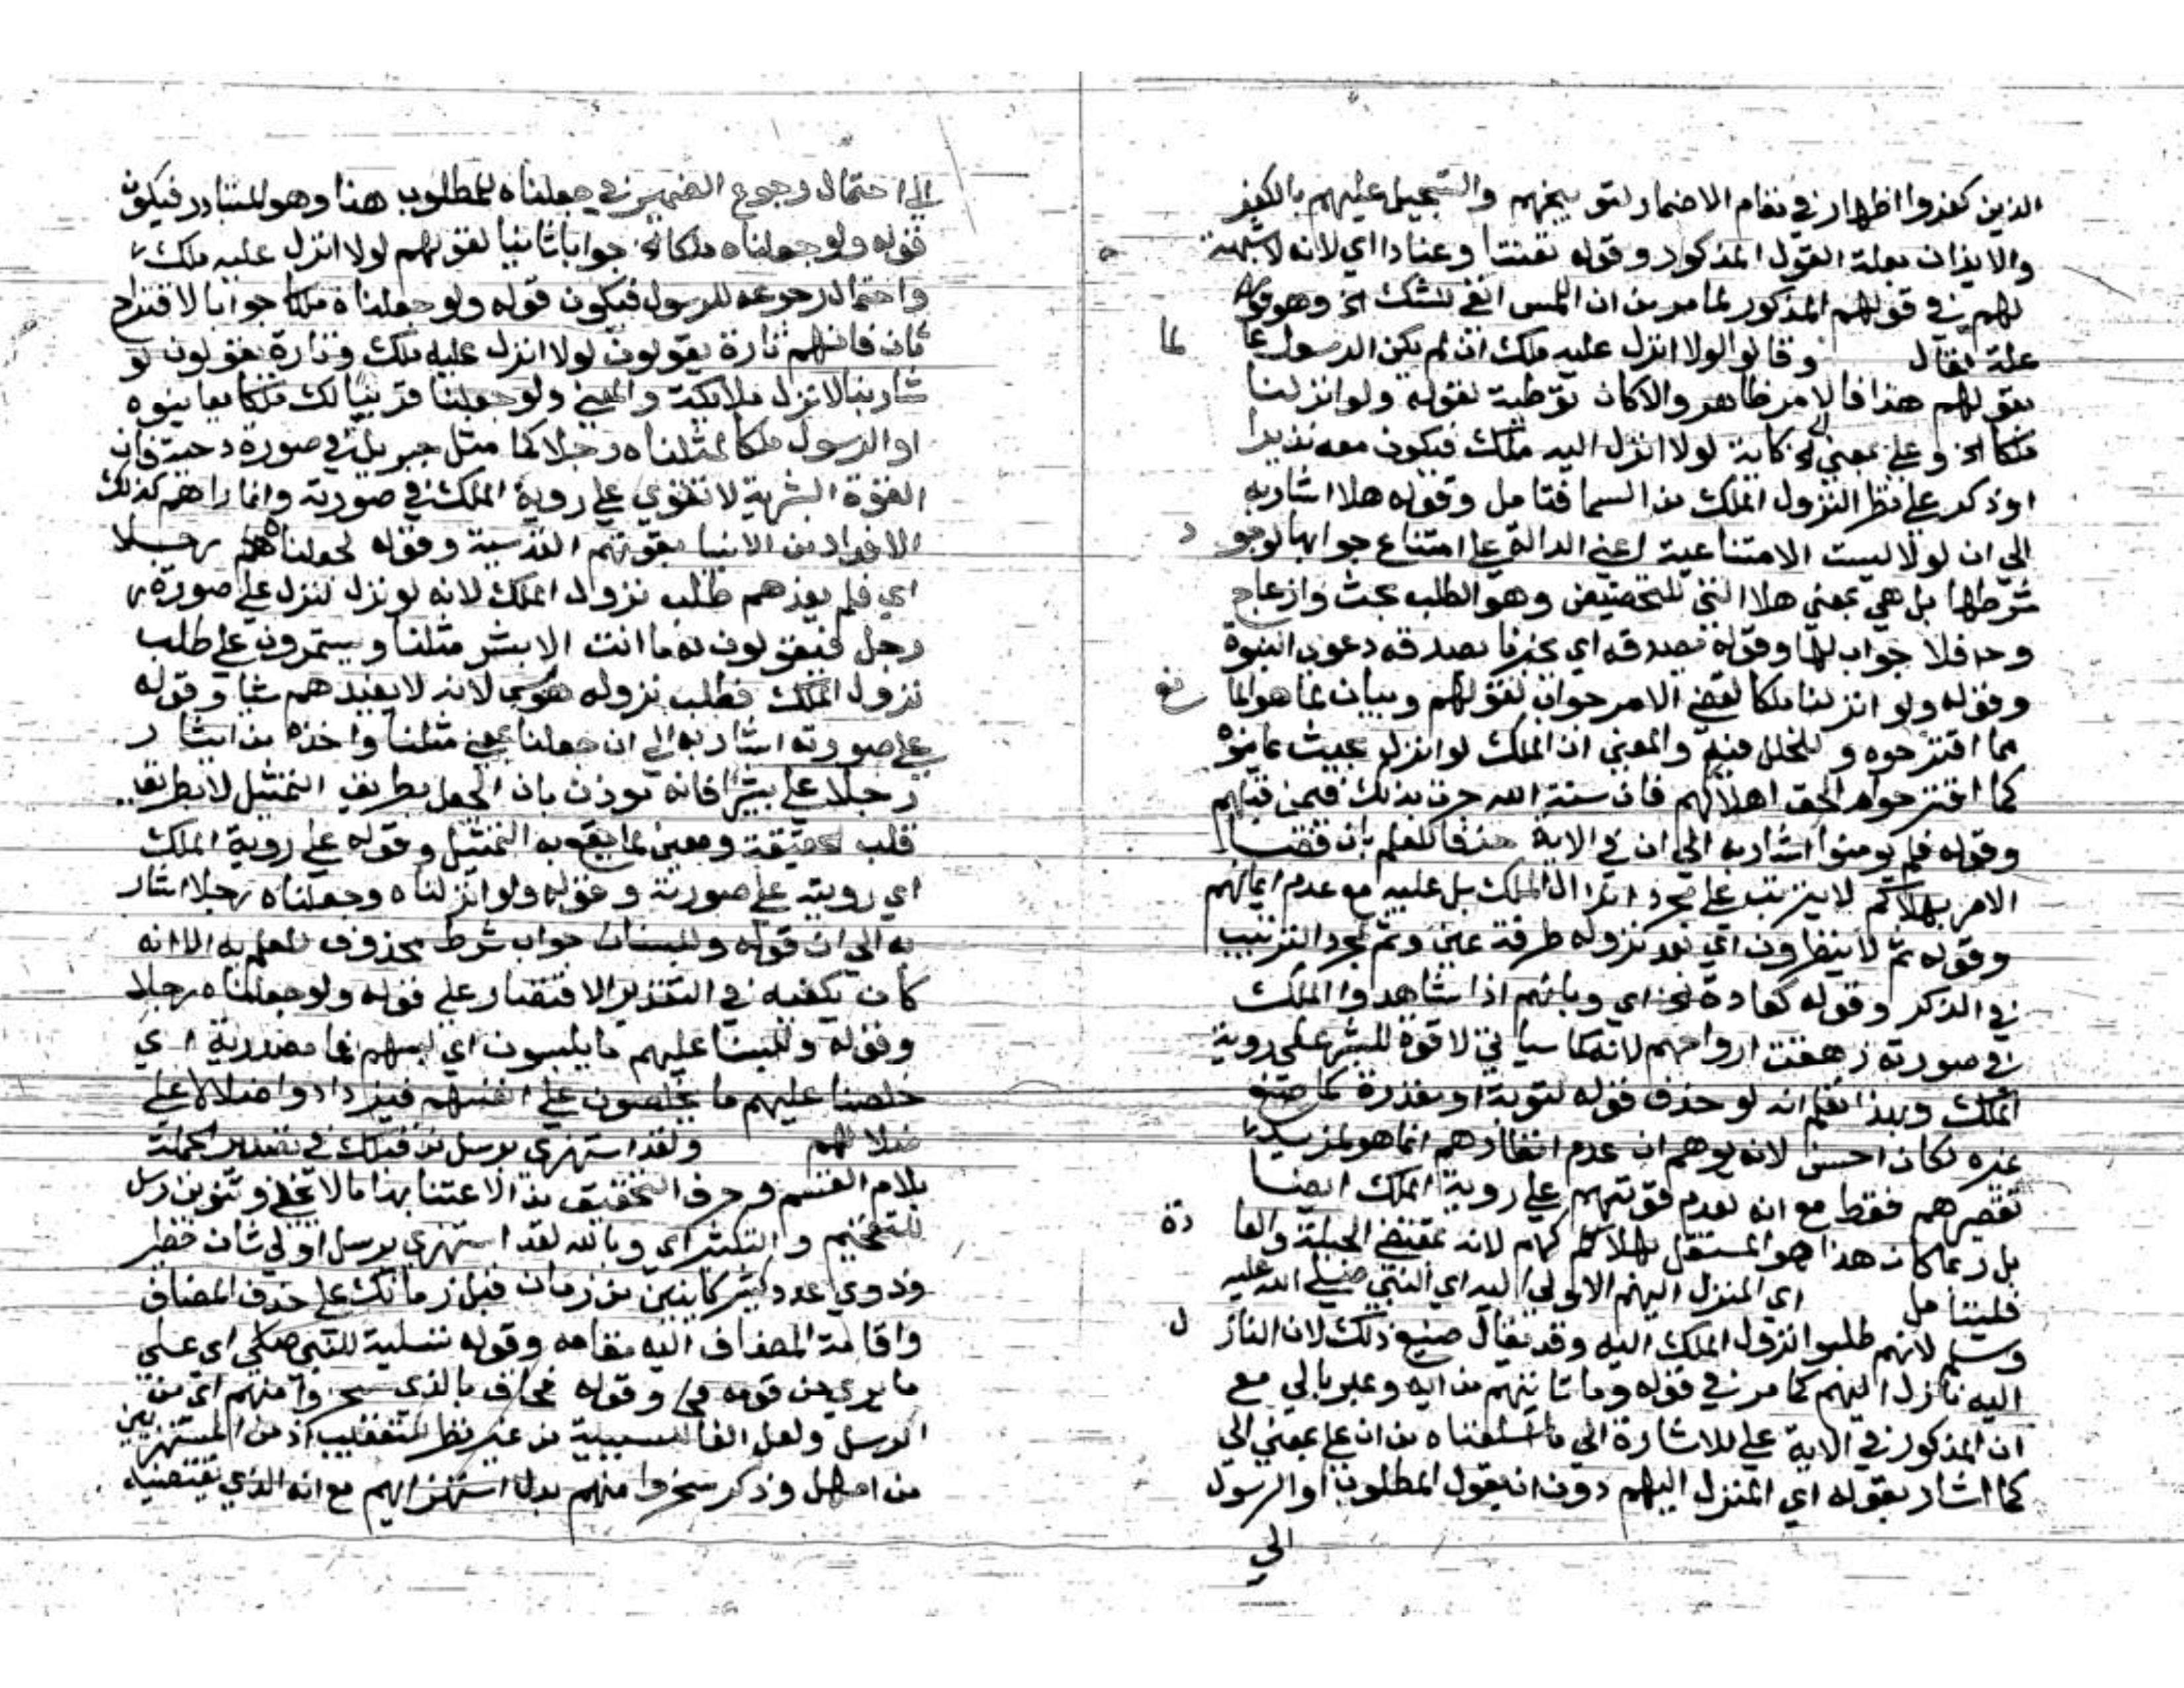 الذين كفروا اظهار في مقام الاضمار لتوبيخهم والتسجيل عليهم بالكفر
والايذان بعلة القول المذكور وقوله تعنتا وعنادا اي لانه لا شبهة
لهم في قولهم المذكور لما مر من ان اللمس انفي للشك الخ وهو في
علة يقال وقالوا لولا انزل عليه ملك ان لم يكن الرسول عا لما
بقولهم هذا فالامر ظاهر والا كان توطية لقوله ولو انزلنا
ملكا الخ وعلي بمعني الي كاية لولا انزل اليه ملك فيكون معه نذيرا
او ذكر علي نظرا لنزول الملك من السما فتامل وقوله هلا اشار به
الي ان لولا ليست الامتناعية اعني الدالة علي امتناع جوابها لوجود
شرطها بل هي بمعني هلا التي للتحضيض وهو الطلب بحث وازعاج
وح فلا جواب لها وقوله يصدقه اي يخبرنا بصدقه دعوي النبوة
وقوله ولو انزلنا ملكا لقضي الامر جواب لقولهم وبيان لما هو الما نع
مما اقترحوه و للخلل فيه والمعني ان الملك لو انزل بحيث عاينوه
كما اقترحوا لحق اهلاكهم فان سنة الله جرت بذلك فيمن قبلهم
وقوله فلم يومنوا اشار به الي ان في الاية حذفا للعلم بان قضا
الامر بهلاكهم لا يترتب علي مجرد انزال الملك بل عليه مع عدم ايمانهم
وقوله ثم لا ينظرون اي بعد نزوله طرفة عين وثم لمجرد الترتيب
في الذكر وقوله كعادة الخ اي وبانهم اذا شاهدوا الملك
في صورته زهقت ارواحهم لانه كما سياتي لا قوة للبشر علي روية
الملك وبهذا تعلم انه لو حذف قوله لتوبة او معذرة كما صنع
غيره لكان احسن لانه يوهم ان عدم انظارهم انما هو لمزيد
تقصيرهم فقط مع انه لعدم قوتهم علي روية الملك ايضا
بل ربما كان هذا هو المستقل بهلاكهم لانه بمقتضي الجبلة والعا دة
فليتامل اي المنزل اليهم الاولي اليه اي النبي صلي الله عليه
وسلم لانهم طلبوا نزول الملك اليه وقد يقال صنيع ذلك لان الناز ل
اليه نازل اليهم كما مر في قوله وما تاتيهم من اية وعبر بالي مع
ان المذكور في الاية علي للاشارة الي ما اسلفناه من ان علي بمعني الي
كما اشار بقوله اي المنزل اليهم دون ان يقول المطلوب او الرسول
الي
الي احتمال رجوع الضمير في جعلناه للمطلوب هنا وهو المتبادر فيكون
قوله ولو جعلناه ملكا الخ جوابا ثانيا لقولهم لولا انزل عليه ملك
واحتمال رجوعه للرسول فيكون قوله ولو جعلناه ملكا جوابا لاقتراح
ثان فانهم تارة يقولون لولا انزل عليه ملك وتارة يقولون لو
شا ربنا لانزل ملائكة والمعني ولو جعلنا قرينا لك ملكا يعاينوه
او الرسول ملكا لمثلناه رجلا كما مثل جبريل في صورة دحية فان
القوة البشرية لا تقوي علي روية الملك في صورته وانما راهم كذلك
الافراد من الانبيا بقوتهم القدسية وقوله لجعلناه رجلا
اي فلم يفدهم طلب نزول الملك لانه لو نزل لنزل علي صورة
رجل فيقولون له ما انت الا بشر مثلنا ويستمرون علي طلب
نزول الملك فطلب نزوله هوس لانه لا يفيدهم شيا وقوله
علي صورته اشار به الي ان جعلنا بمعني مثلنا واخذه من ايثار
رجلا علي بشرا فانه يوذن بان الجعل بطريق التمثيل لا بطريق
قلب الحقيقة ومعين لما يقع به التمثيل وقوله علي روية الملك
اي رويته علي صورته وقوله ولو انزلناه وجعلناه رجلا اشار
به الي ان قوله وللبسنا جواب شرط محذوف للعلم به الا انه
كان يكفيه في التقدير الاقتصار علي قوله ولو جعلناه رجلا
وقوله وللبسنا عليهم ما يلبسون اي لبسهم فما مصدرية اي
خلطنا عليهم ما يخلطون علي انفسهم فيزدادوا ضلالا علي
ضلالهم ولقد استهزي برسل من قبلك في تصدير الجملة
بلام القسم وحرف التحقيق من الاعتنا بها ما لا يخفي وتنوين رسل
للتفخيم والتكثير اي وبالله لقد استهزي برسل اولي شان خطير
وذوي عدد كثير كاينين من زمان قبل زمانك علي حذف المضاف
واقامة المضاف اليه مقامه وقوله تسلية للنبي صلي اي علي
ما يري من قومه وقوله فحاق بالذين سخروا منهم اي من
الرسل ولعل الفا للسببية من غير نظر للتعقيب اذ من المستهزيين
من امهل وذكر سخروا منهم بدل استهزايهم مع انه الذي يقتضيه